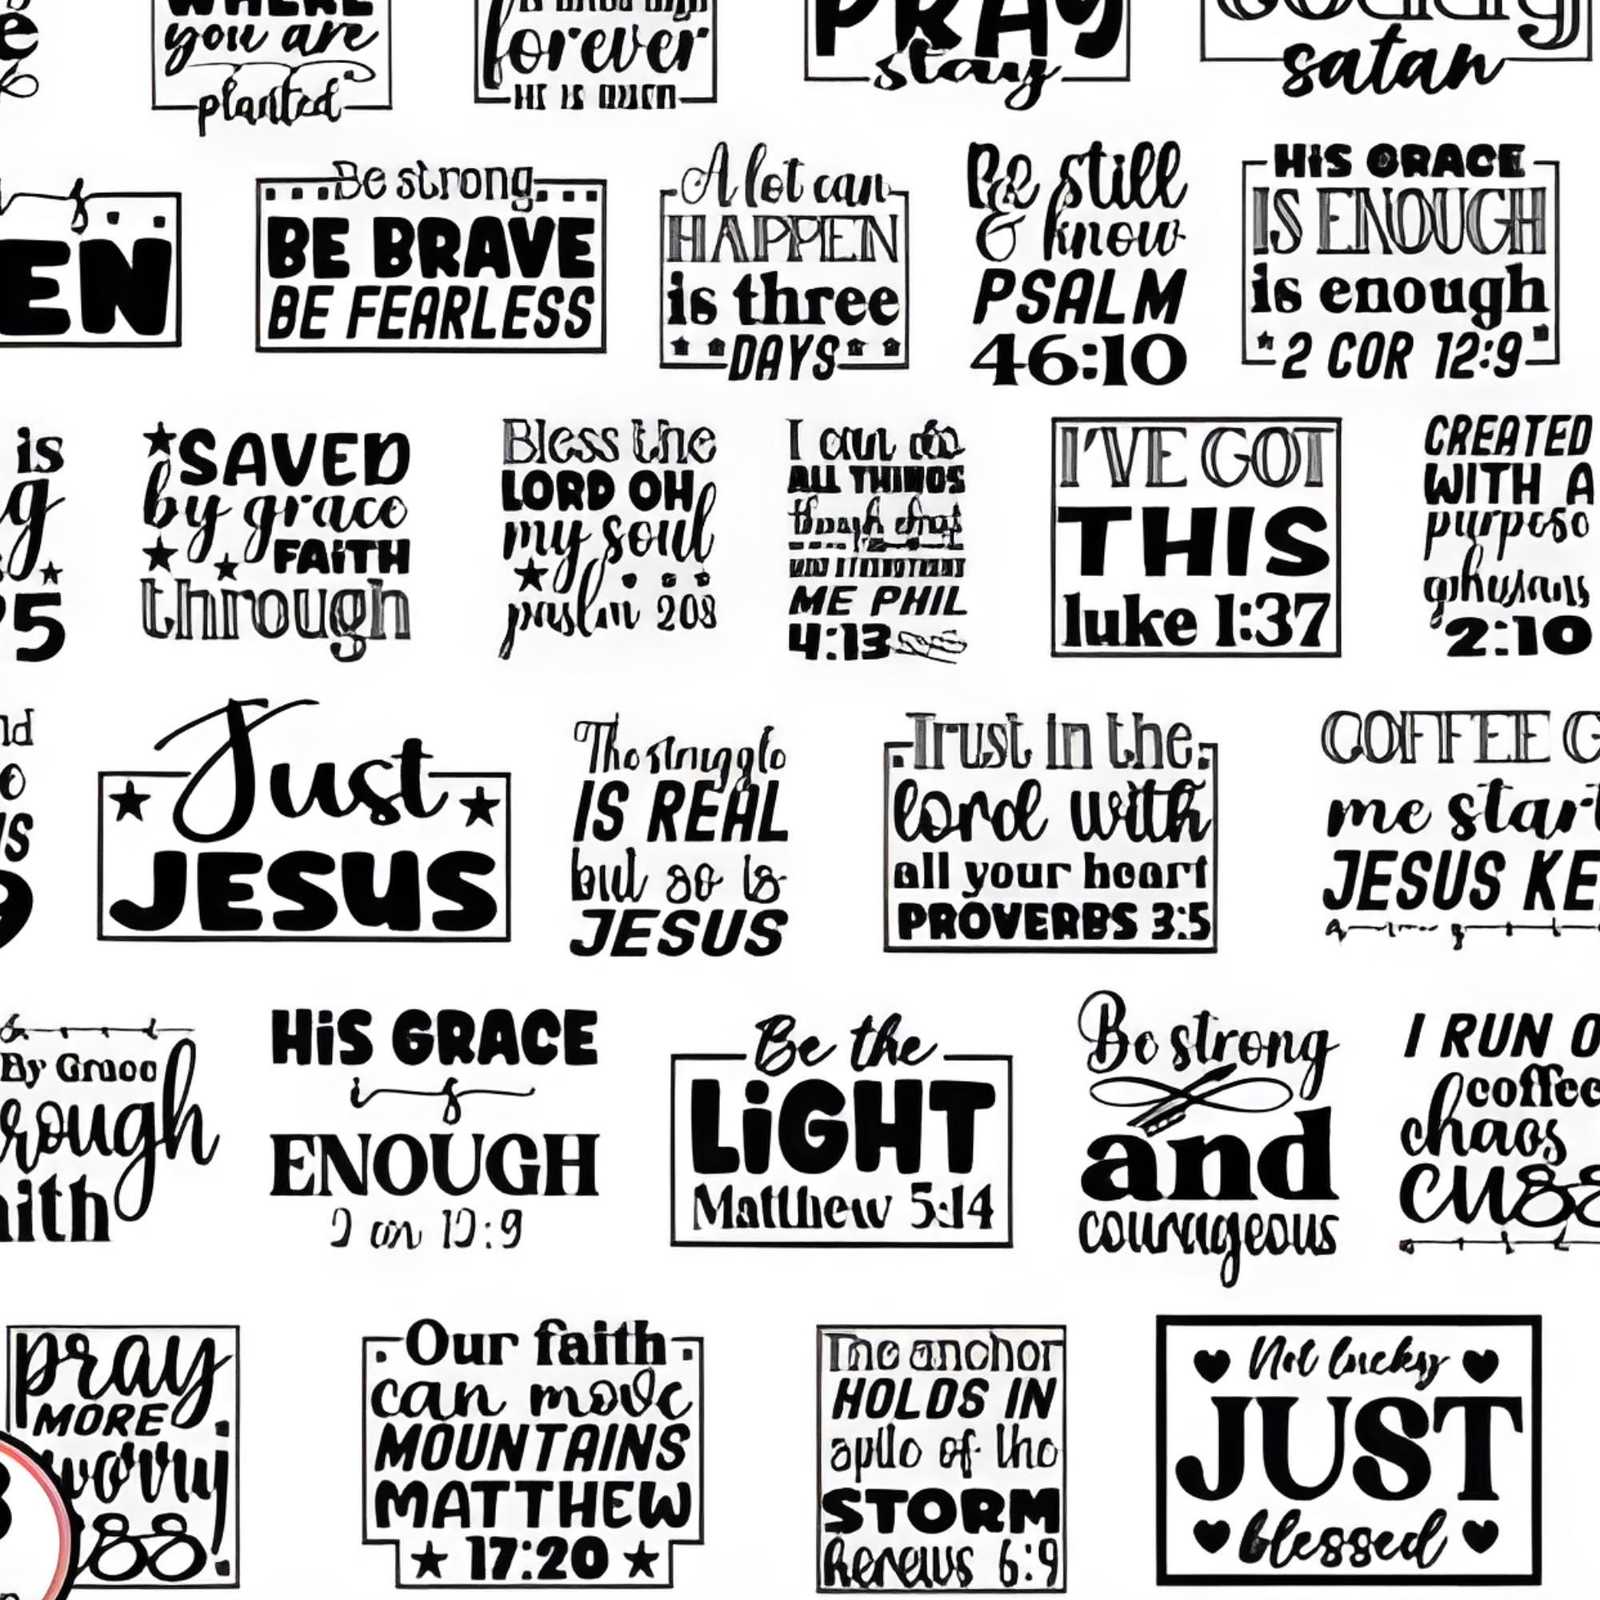 WHERE
you are
planted
forever
PRAY
stay
satan
EN
Be strong
BE BRAVE
BE FEARLESS
A lot can
HAPPEN
is three
DAYS
Be still
& know
PSALM
46:10
HIS GRACE
IS ENOUGH
is enough
2 COR 12:9
is
g
5
SAVED
by grace
FAITH
through
Bless the
LORD OH
my soul
208
I can do
ALL THINGS
ME PHIL
4:13
I'VE GOT
THIS
luke 1:37
CREATED
WITH A
purpose
2:10
Just
JESUS
The struggle
IS REAL
but so is
JESUS
Trust in the
lord with
all your heart
PROVERBS 3:5
COFFEE G
me start
JESUS KE
By Grace
rough
aith
HiS GRACE
is
ENOUGH
Be the
LiGHT
Matthew 5:14
Be strong
and
courageous
I RUN O
coffee
chaos
cuss
pray
MORE
worry
Our faith
can move
MOUNTAINS
MATTHEW
17:20
The anchor
HOLDS IN
of the
STORM
6:9
Not lucky
JUST
blessed